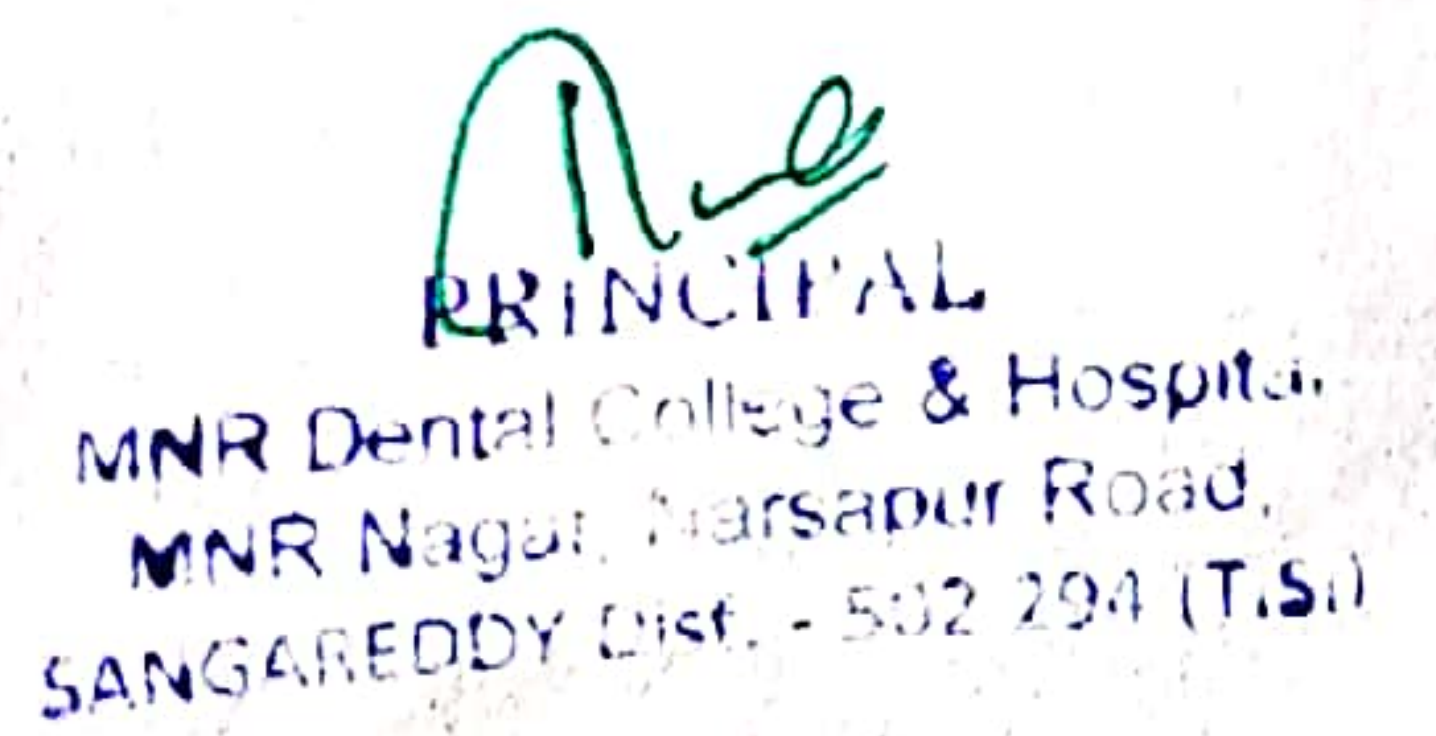 PRINCIPAL
MNR Dental College & Hospital,
MNR Nagar, Narsapur Road,
SANGAREDDY Dist. - 502 294 (T.S.)